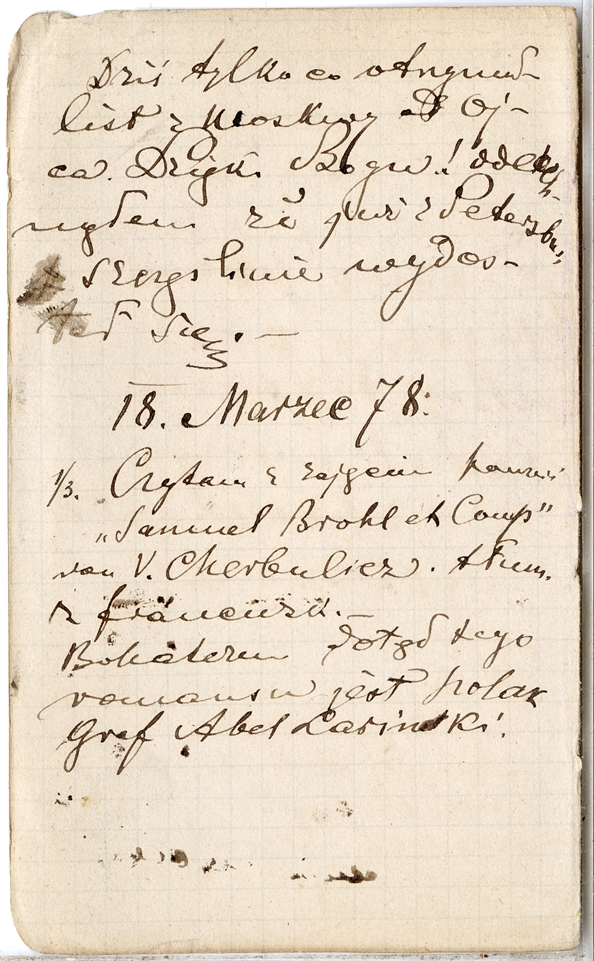 Dziś tylko co otrzymał-
list z Moskwy od Oj-
ca. Dzięki Bogu! odetch-
nąłem że już z Petersbur.
szczęśliwie wydos-
tał się. —
18. Marzec 78.
1/3. Czytam z zajęciem
„Samuel Brohl et Comp"
von V. Cherbuliez. tłum.
z francuzk. —
Bohaterem dotąd tego
romansu jest polak
Graf Abel Larinski.